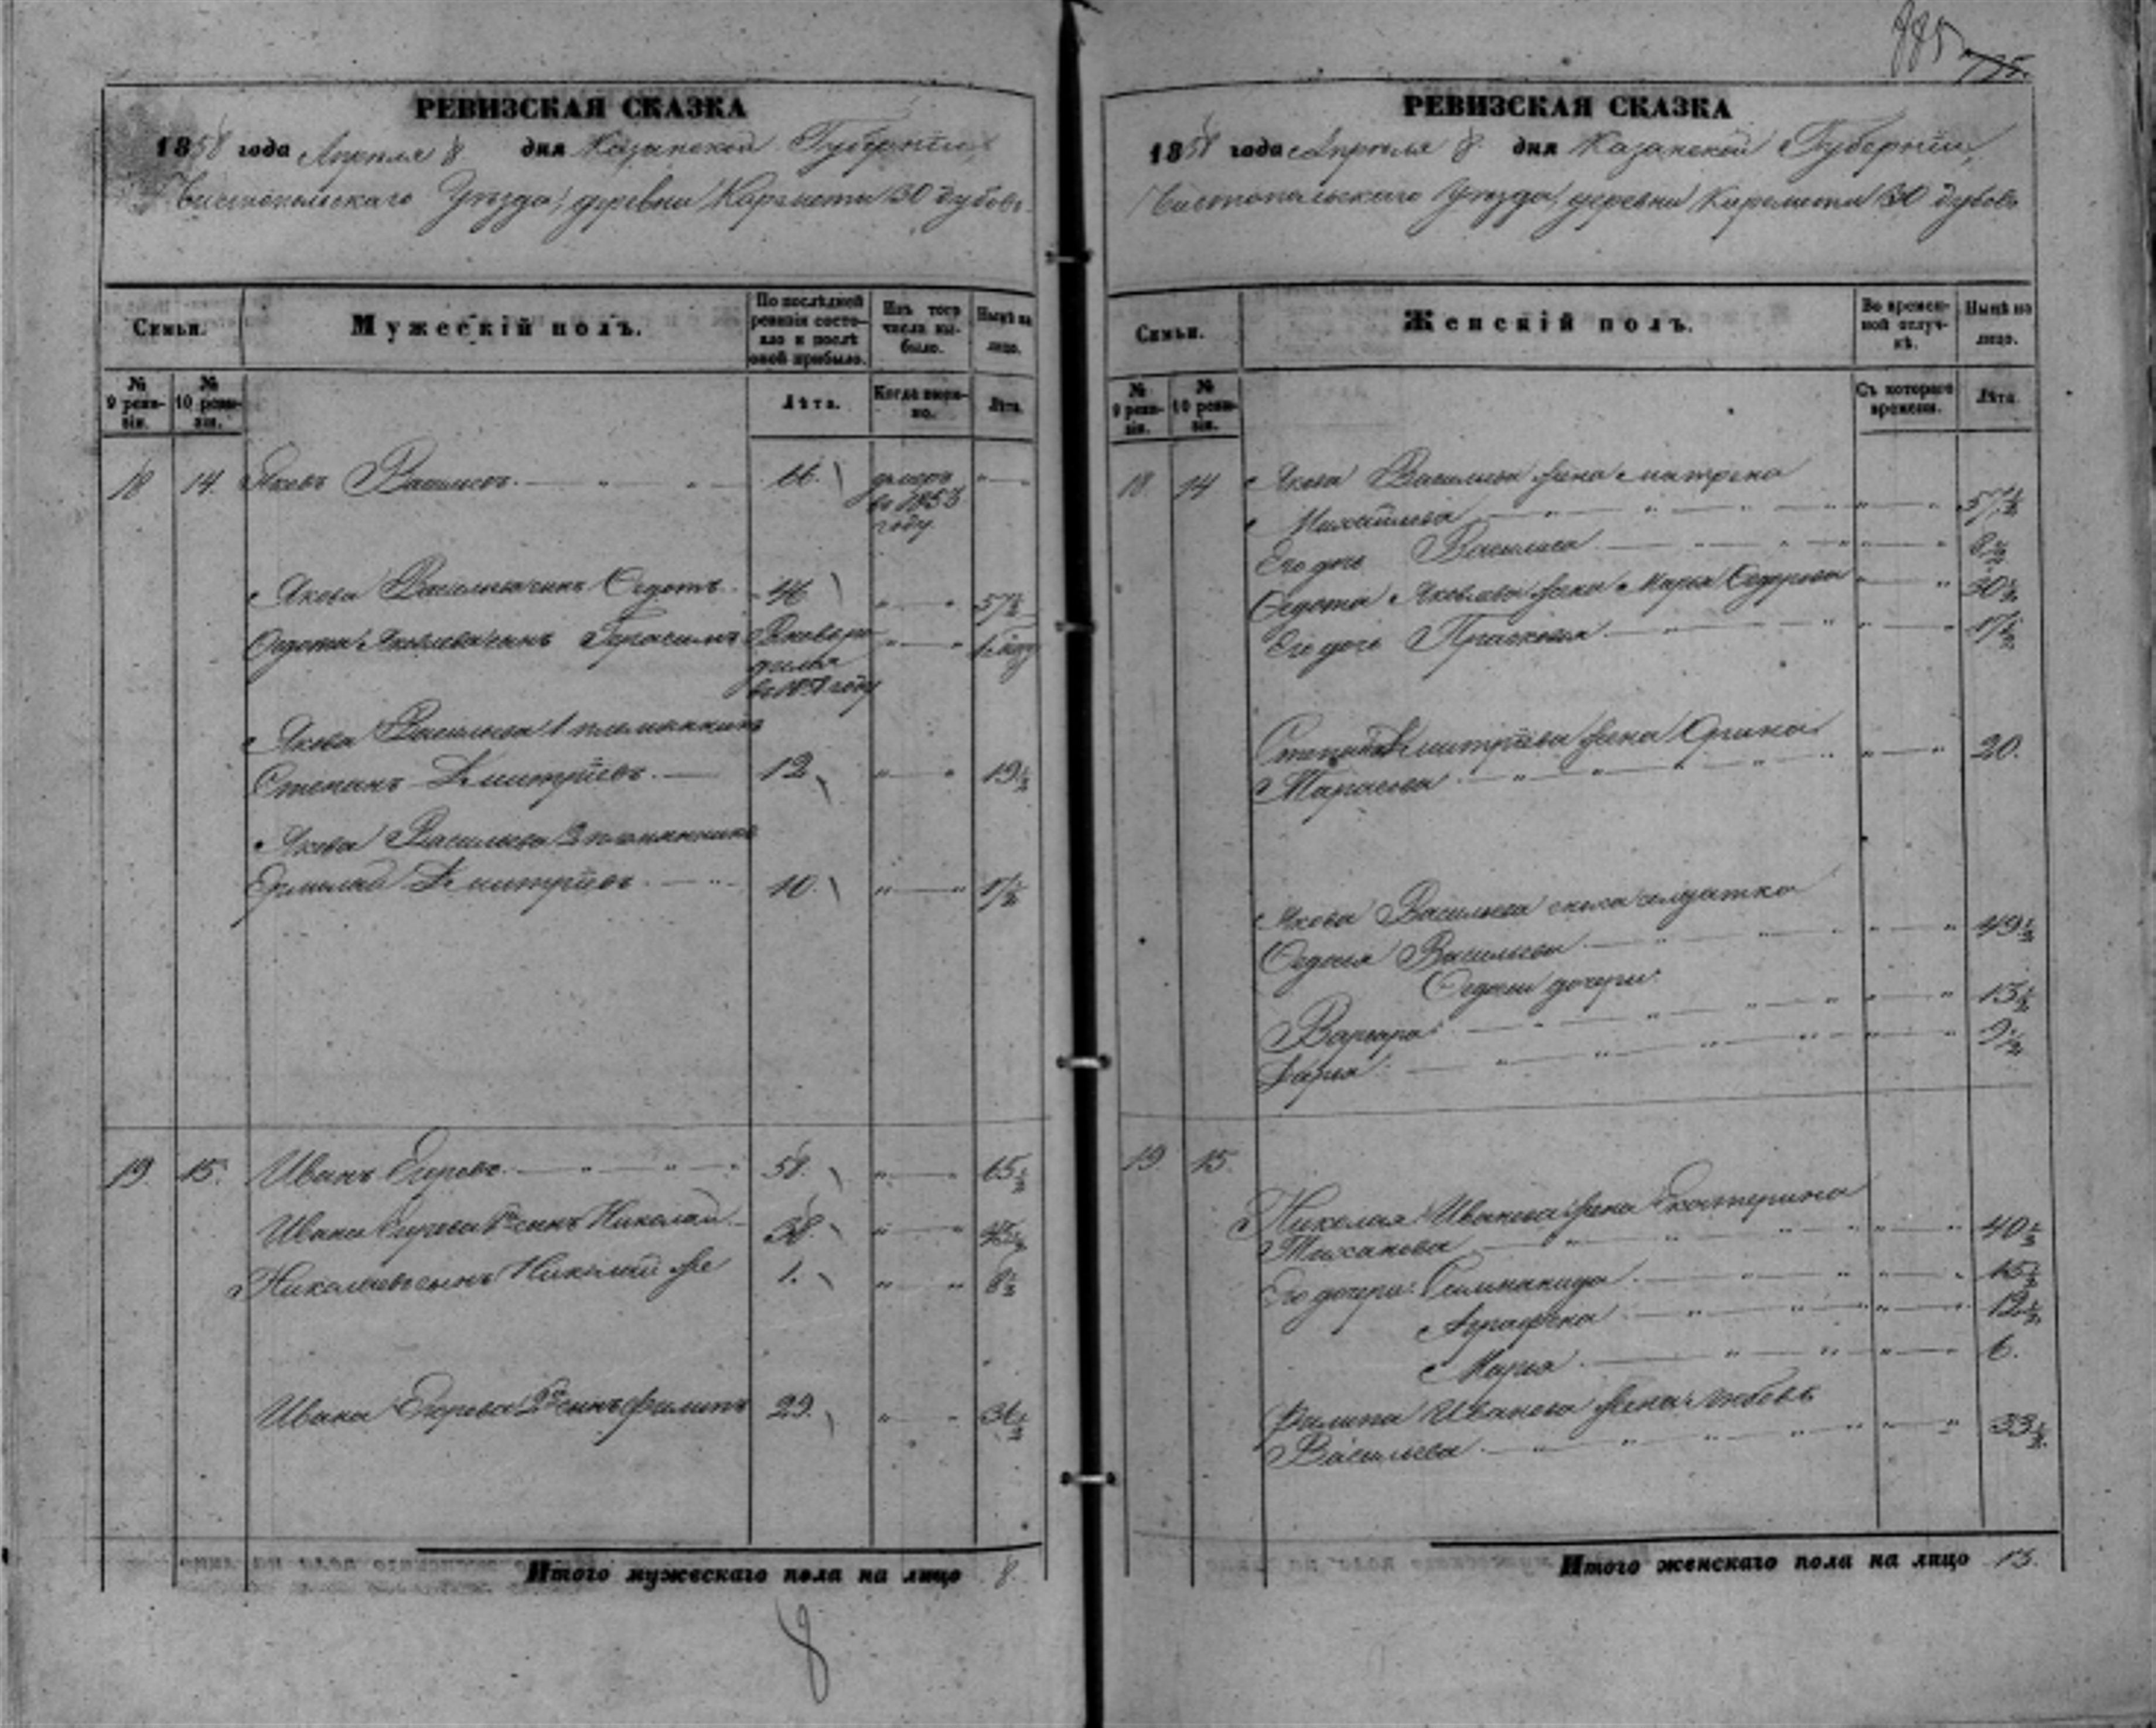 885
РЕВИЗСКАЯ СКАЗКА
1858 года Апреля 8 дня Казанской Губерніи,
Чистопольскаго Уѣзда, деревни 30 дубовъ
Семьи.
Мужескій полъ.
По послѣдней ревизіи состояло и послѣ оной прибыло.
Изъ того числа выбыло.
Нынѣ на лицо.
№ 9 ревизіи.
№ 10 ревизіи.
Лѣта.
Когда именно.
Лѣта.
18 14. Яковъ Васильевъ 66 умеръ
въ 1858
году
Якова Васильева сынъ Федотъ 57½
Федота Яковлева сынъ Герасимъ Вновь ро-
въ 1858 году
Якова Васильева 1 племянникъ
Степанъ Дмитріевъ 12 19½
Якова Васильева 2 племянникъ
Ермилъ Дмитріевъ 10. 17½
19. 15. Иванъ Егоровъ 58. 65½
Ивана Егорова 1й сынъ Николай 38. 45½
Николаевъ сынъ Николай же 1. 8½
Ивана Егорова 2й сынъ Филипъ 29. 36½
Итого мужескаго пола на лицо 8.
8
РЕВИЗСКАЯ СКАЗКА
1858 года Апрѣля 8 дня Казанской Губерніи,
Чистопольскаго Уѣзда, деревни 30 дубовъ
Семьи.
Женскій полъ.
Во временной отлучкѣ.
Нынѣ на лицо.
№ 9 ревизіи.
№ 10 ревизіи.
Съ котораго времени.
Лѣта.
18. 14 Якова Васильева жена Матрена
Михайлова 57½
Его дочь Василиса 8½
Федота Яковлева жена Марья Федорова 30½
Его дочь Прасковья 17½
Степана Дмитріева жена Орина
Тарасова 20.
Якова Васильева сноха солдатка
Федосья Васильева 49½
Федосьи дочери:
Варвара 13½
Дарья 9½
19. 15.
Николая Иванова жена Екатерина
40½
Его дочери: 15½
Аграфена 12½
Марья 6.
Филипа Иванова жена Любовь
Васильева 33½
Итого женскаго пола на лицо 13.